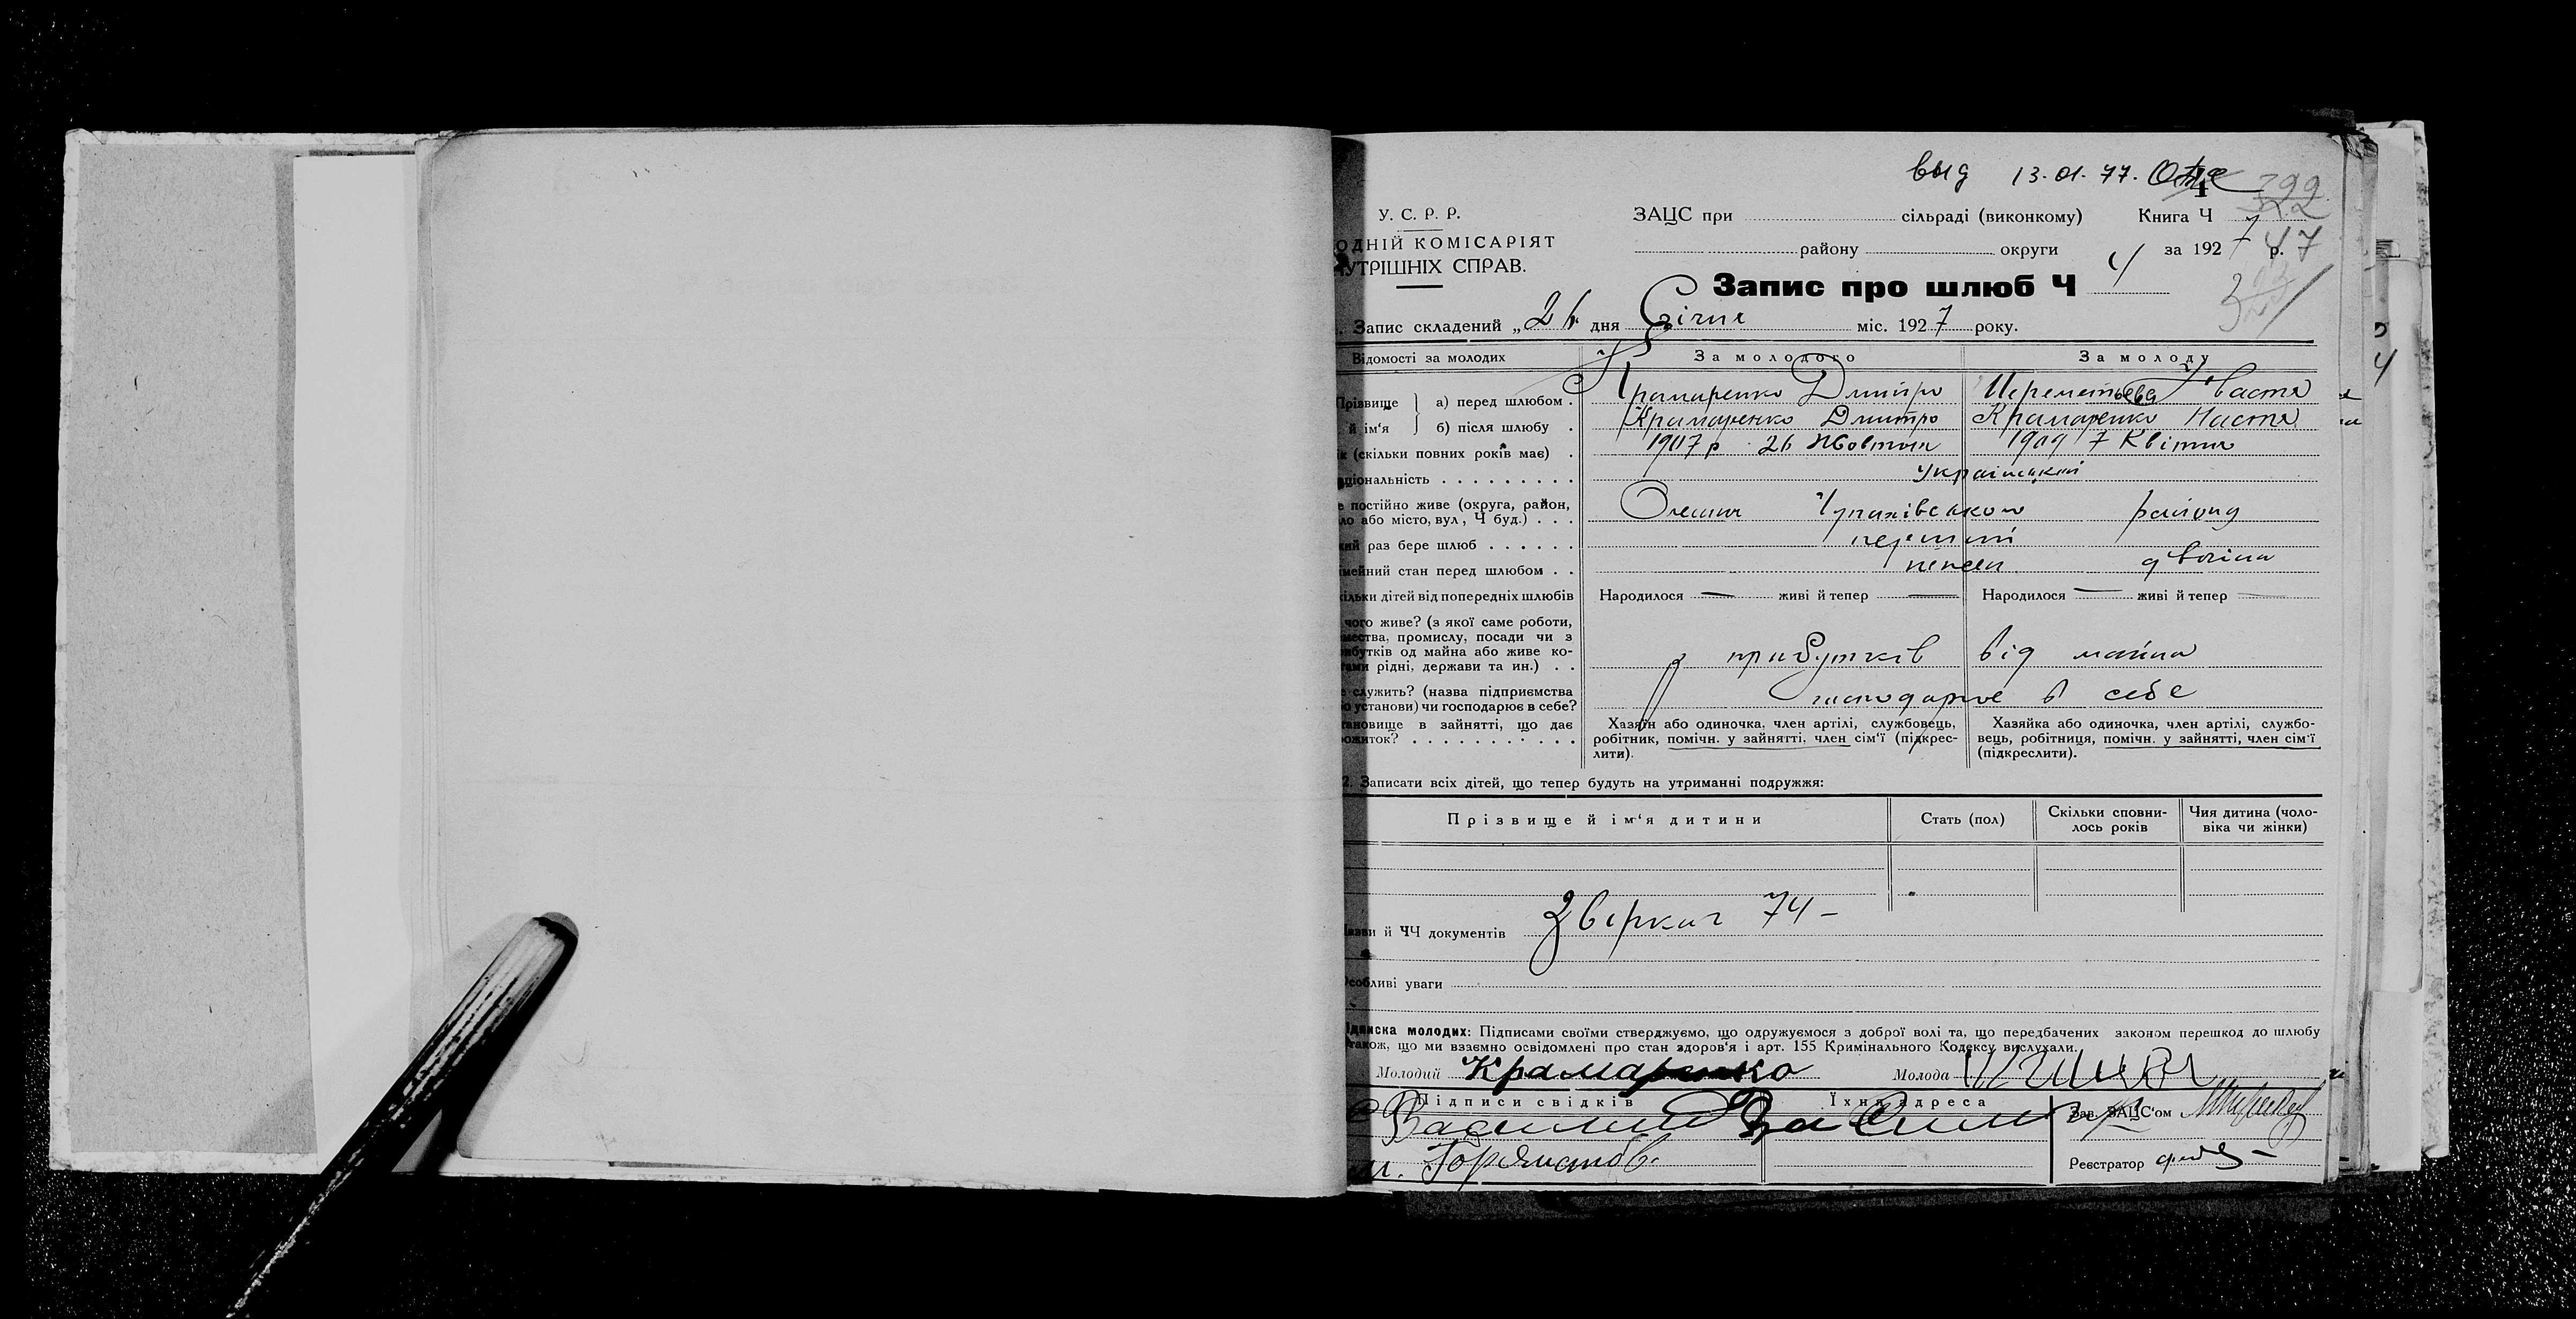 выд 13.01.77.
322
У. С. Р. Р.
ОДНІЙ КОМІСАРІЯТ
УТРІШНІХ СПРАВ.
ЗАЦС при сільраді (виконкому) Книга Ч
району округи за 1927 р. 47
Запис про шлюб Ч 4
Запис складений „26 дня Січня міс. 1927 року.
Відомості за молодих За молодого За молоду
Прізвище й ім‘я а) перед шлюбом . Крамаренко Дмитро Шереметьева Настя
б) після шлюбу . Крамаренко Дмитро Крамаренко Настя
ік (скільки повних років має) . 1907 р 26 Жовтня 1909 7 Квітня
аціональність . . . . . . . . . український
е постійно живе (округа, район,
ло або місто, вул, Ч буд.) . . . Олешня Чупахівського району
кий раз бере шлюб . . . . . . перший
імейний стан перед шлюбом . . дівчина
кільки дітей від попередніх шлюбів Народилося — живі й тепер — Народилося — живі й тепер —
чого живе? (з якої саме роботи,
мества, промислу, посади чи з
ибутків од майна або живе ко-
тами рідні, держави та ин.) . . з прибутків від майна
е служить? (назва підприємства
о установи) чи господарює в себе? господарює в себе
тановище в зайнятті, що дає
ожиток? . . . . . . . . . . .
Хазяїн або одиночка, член артілі, службовець,
робітник, помічн. у зайнятті, член сім‘ї (підкрес-
лити).
Хазяйка або одиночка, член артілі, службо-
вець, робітниця, помічн. у зайнятті, член сім‘ї
(підкреслити).
2. Записати всіх дітей, що тепер будуть на утриманні подружжя:
Прізвище й ім‘я дитини Стать (пол) Скільки сповни-
лось років Чия дитина (чоло-
віка чи жінки)
Назви й ЧЧ документів 74 –
Особливі уваги
Підписка молодих: Підписами своїми стверджуємо, що одружуємося з доброї волі та, що передбачених законом перешкод до шлюбу
також, що ми взаємно освідомлені про стан здоров‘я і арт. 155 Кримінального Кодексу вислухали.
Молодий Крамаренко Молода
Підписи свідків Їхня адреса
Зав. ЗАЦС‘ом
Реєстратор